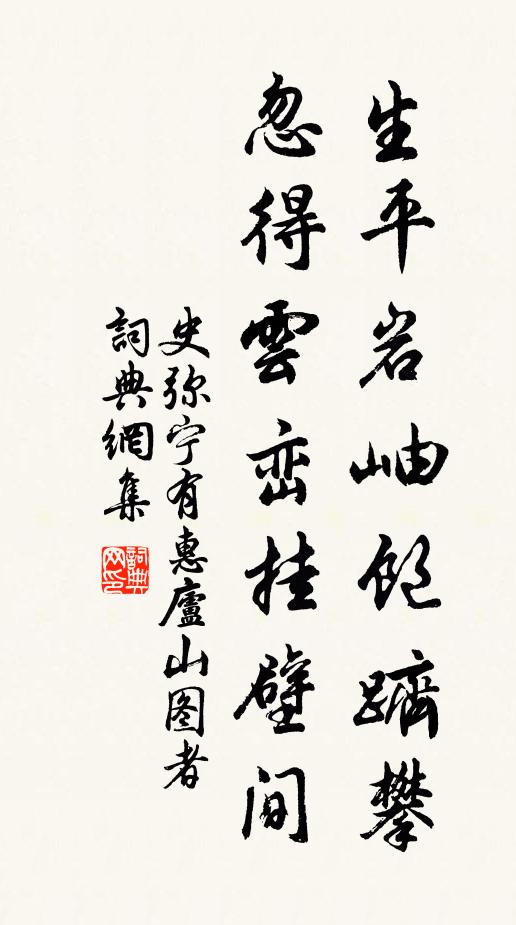 生平岩岫飽躋攀
忽得雲峦挂壁间
史弥宁有惠廬山图者
詞典網集
詞典网印